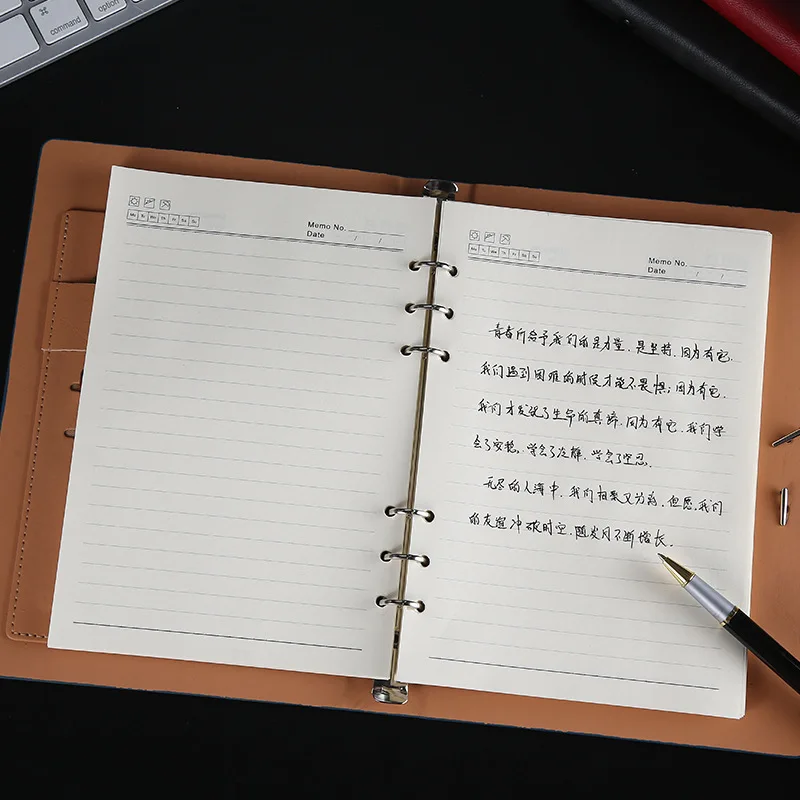 command
option
Mo Tu We Th Fr Sa Su
Memo No.
Date / /
Mo Tu We Th Fr Sa Su
Memo No.
Date / /
青春所给予我们的是力量,是坚持,因为有它,
我们遇到困难的时候才能不畏惧;因为有它,
我们才发现了生命的真谛,因为有它,我们学
会了安稳,学会了冷静,学会了坚忍.
无尽的人海中,我们相聚又分离,但愿,我们
的友谊冲破时空,随岁月不断增长.